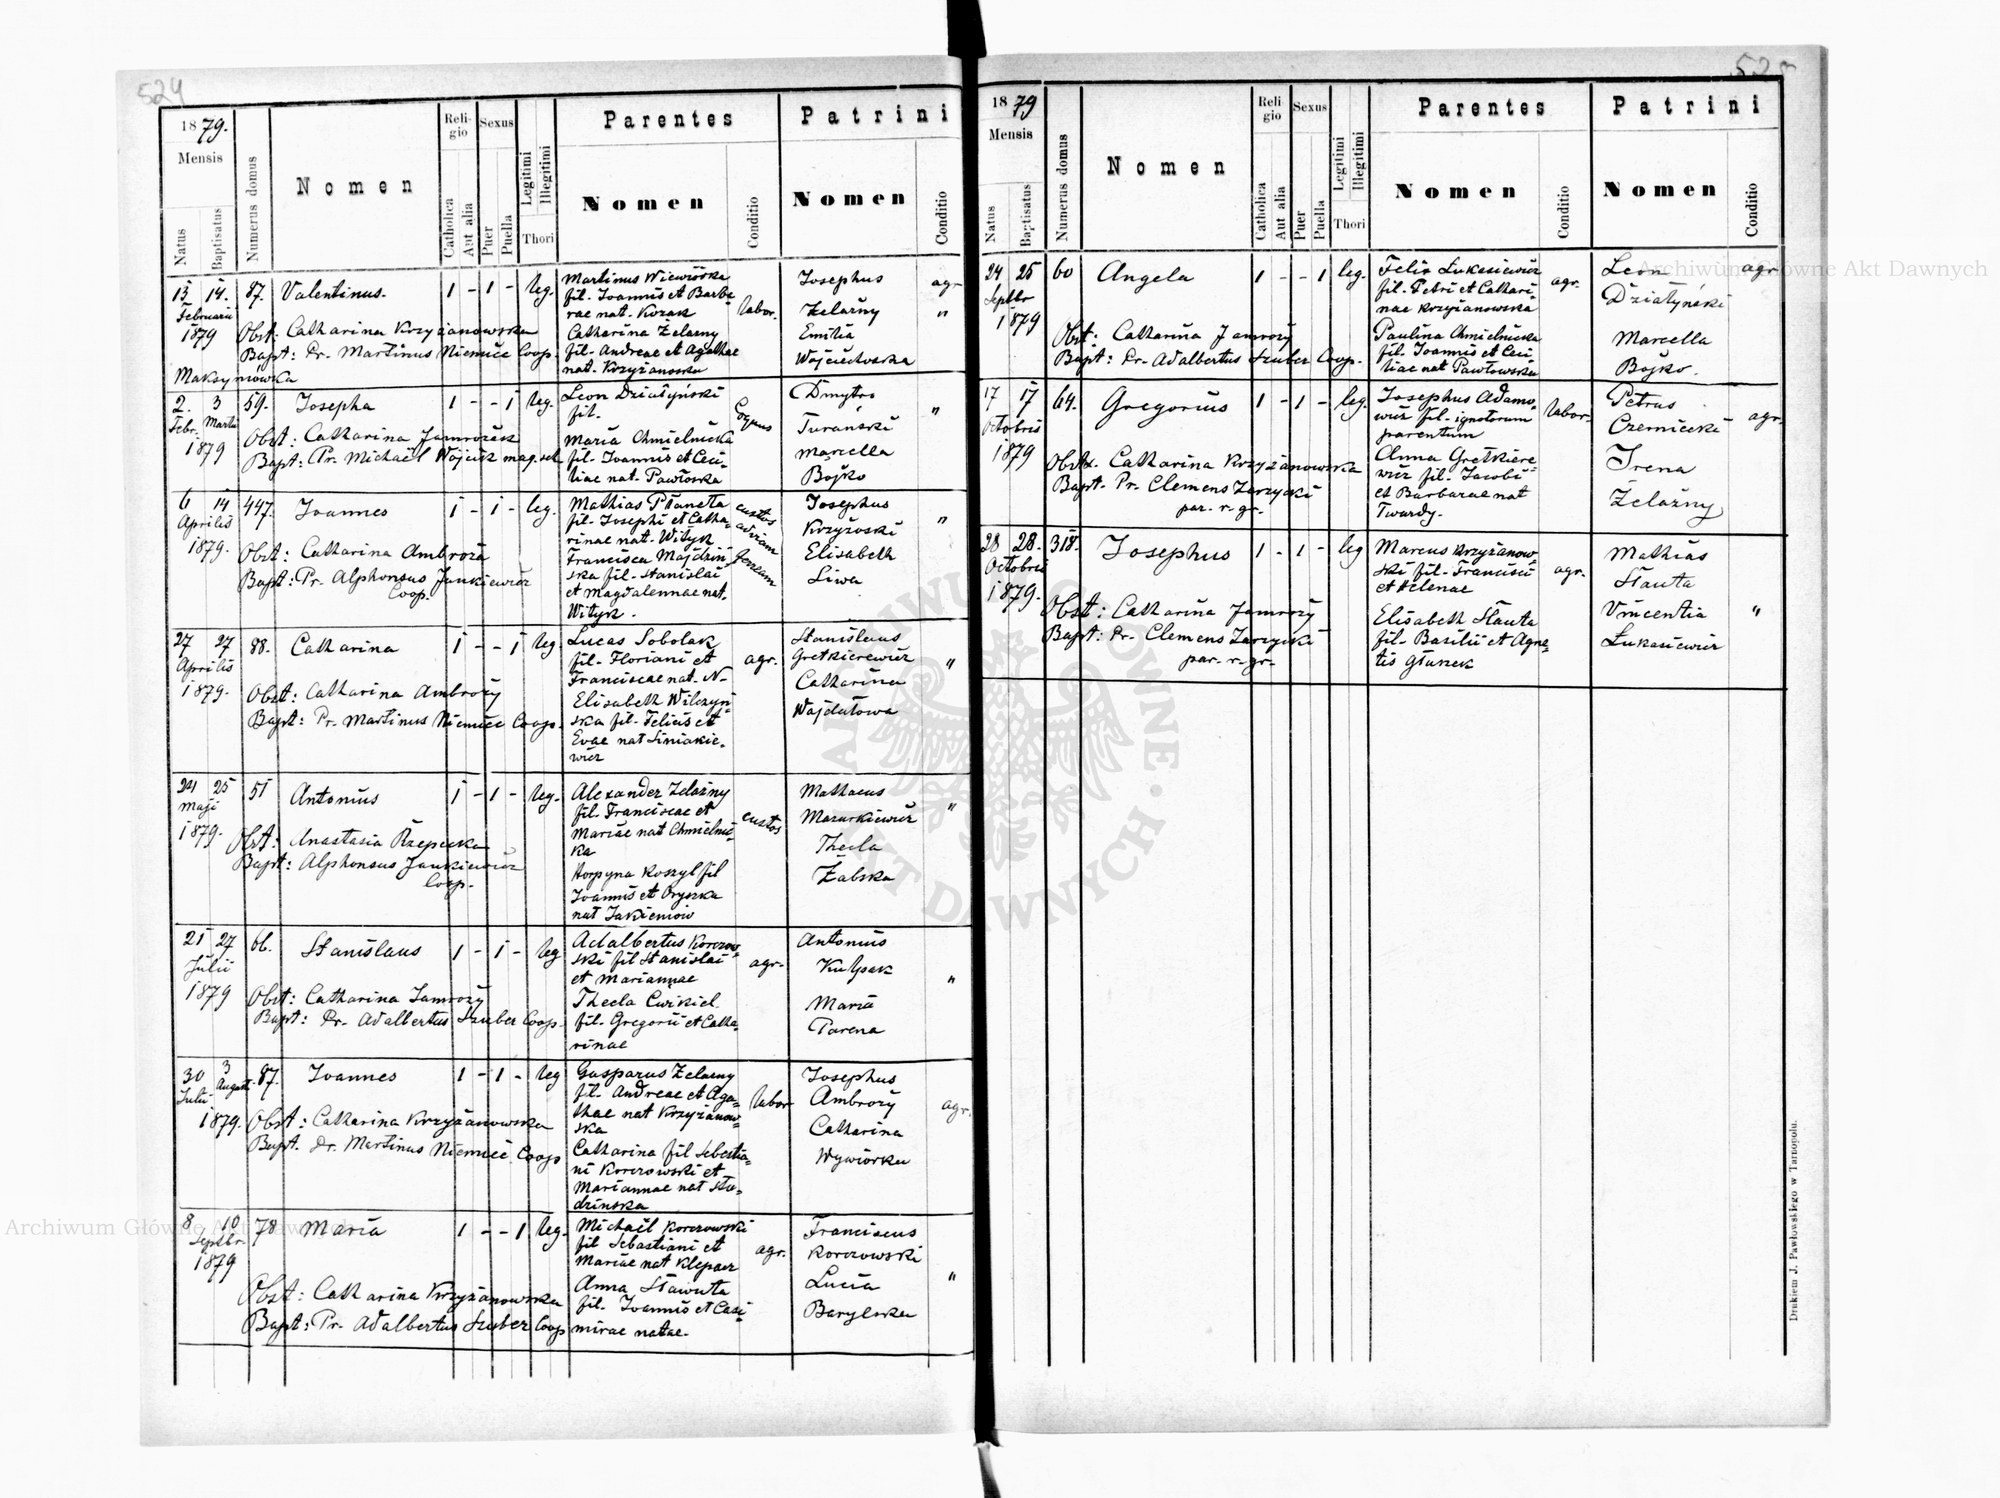 524
1879.
Mensis
Natus
Baptisatus
Numerus domus
Nomen
Religio
Catholica
Aut alia
Sexus
Puer
Puella
Legitimi
Illegitimi
Thori
Parentes
Nomen
Conditio
Patrini
Nomen
Conditio
13 14. 87. Valentinus. 1 - 1 - leg.
Februarii
1879
Obst: Catharina Krzyżanowska
Bapt: Pr. Martinus Niemiec Coop.
Maksymówka
Martinus Wiewiórka
fil. Joannis et Barba
rae nat. Kozak
Catharina Żelazny
fil. Andreae et Agathae
nat. Krzyżanowska
labor.
Josephus
Żelaźny
Emilia
Wojciechowska
agr
"
2. 3 59. Josepha 1 - - 1 leg.
Febr. Martii
1879
Obst: Catharina Jamrozik
Bapt: Pr. Michaël Wójcik
Leon Działyński
fil.
Maria Chmielnicka
fil. Joannis et Ceci-
liae nat. Pawłoska
Dmytro
Turański
Marcella
Bojko
"
6 14 447. Joannes 1 - 1 - leg.
Aprilis
1879.
Obst: Catharina Ambroza
Bapt: Pr. Alphonsus Jankiewicz
Coop.
Mathias Planeta
fil. Josephi et Catha-
rinae nat. Wityk
Francisca Majdziń-
ska fil. Stanislai
et Magdalennae nat.
Wityk.
custos
ad viam
ferream
Josephus
Krzyżoski
Elisabeth
Liwa
"
27 27 88. Catharina 1 - - 1 leg
Aprilis
1879.
Obst: Catharina Ambroży
Bapt: Pr. Martinus Niemiec Coop.
Lucas Sobolak
fil. Floriani et
Franciscae nat. N-
Elisabeth Wilczyń-
ska fil. Felicis et
Evae nat Siniakie-
wicz
agr.
Stanislaus
Gretkierewicz
Catharina
Wajdałowa
"
24 25 51 Antonius 1 - 1 - leg.
Maji
1879.
Obst: Anastasia Rzepecka
Bapt: Alphonsus Jankiewicz
Coop.
Alexander Żelaźny
fil. Franciscae et
Mariae nat Chmielnic-
ka
Horpyna Koszyl fil
Joannis et Oryszka
nat Jakiemow
custos
Mathaeus
Mazurkiewicz
Thecla
Żabska
"
21 27 66. Stanislaus 1 - 1 - leg
Julii
1879
Obst: Catharina Jamroży
Bapt: Pr. Adalbertus Szuber Coop.
Adalbertus Korczow-
ski fil Stanislai
et Mariannae
Thecla Cwikiel
fil. Gregorii et Catha-
rinae
agr.
Antonius
Kulpak
Maria
Parena
"
30 3 87. Joannes 1 - 1 - leg
Julii August.
1879.
Obst: Catharina Krzyżanowska
Bapt. Pr. Martinus Niemiec Coop
Gasparus Żelazny
fil. Andreae et Aga-
thae nat Krzyżanow-
ska
Catharina fil Sebestia-
ni Korczowski et
Mariannae nat Stu-
dzinska
labor
Josephus
Ambroży
Catharina
Wywiórka
agr.
8 10 78 Maria 1 - - 1 leg.
Septbr.
1879
Obst: Catharina Krzyżanowska
Bapt: Pr. Adalbertus Szuber Coop
Michaël Korczowski
fil Sebastiani et
Mariae nat Klepacz
Anna Sławuta
fil. Joannis et Casi-
mirae natae.
agr.
Franciscus
Korczowski
Lucia
Barylska
"
1879
Mensis
Natus
Baptisatus
Numerus domus
Nomen
Religio
Catholica
Aut alia
Sexus
Puer
Puella
Legitimi
Illegitimi
Thori
Parentes
Nomen
Conditio
Patrini
Nomen
Conditio
24 25 60 Angela 1 - - 1 leg.
Septbr
1879
Obst: Catharina Jamroży
Bapt: Pr. Adalbertus Szuber Coop.
Felix Łukasiewicz
fil. Petri et Cathari-
nae Krzyżanowska
Paulina Chmielnicka
fil. Joannis et Ceci-
liae nat Pawłowska
agr.
Leon
Działyński
Marcella
Bojko.
agr.
17 17 64. Gregorius 1 - 1 - leg.
Octobris
1879
Obstx. Catharina Krzyżanowska
Bapt. Pr. Clemens Zarzycki
par. r. gr.
Josephus Adamo-
wicz fil. ignotorum
parentum
Anna Gretkiere-
wicz fil. Jacobi
et Barbarae nat
Twardy.
labor.
Petrus
Czernicki
Irena
Żelaźny
agr.
28 28. 318. Josephus 1 - 1 - leg
Octobris
1879.
Obst: Catharina Jamroży
Bapt: Pr. Clemens Zarzycki
par. r. gr.
Marcus Krzyżanow-
ski fil. Francisci
et Helenae
Elisabeth Słauta
fil. Basilii et Agne-
tis Głuszek
agr.
Mathias
Słauta
Vincentia
Łukasiewicz
"
Drukiem J. Pawłowskiego w Tarnopolu.
Archiwum Główne Akt Dawnych
Archiwum Główne Akt Dawnych
ARCHIWUM GŁÓWNE AKT DAWNYCH